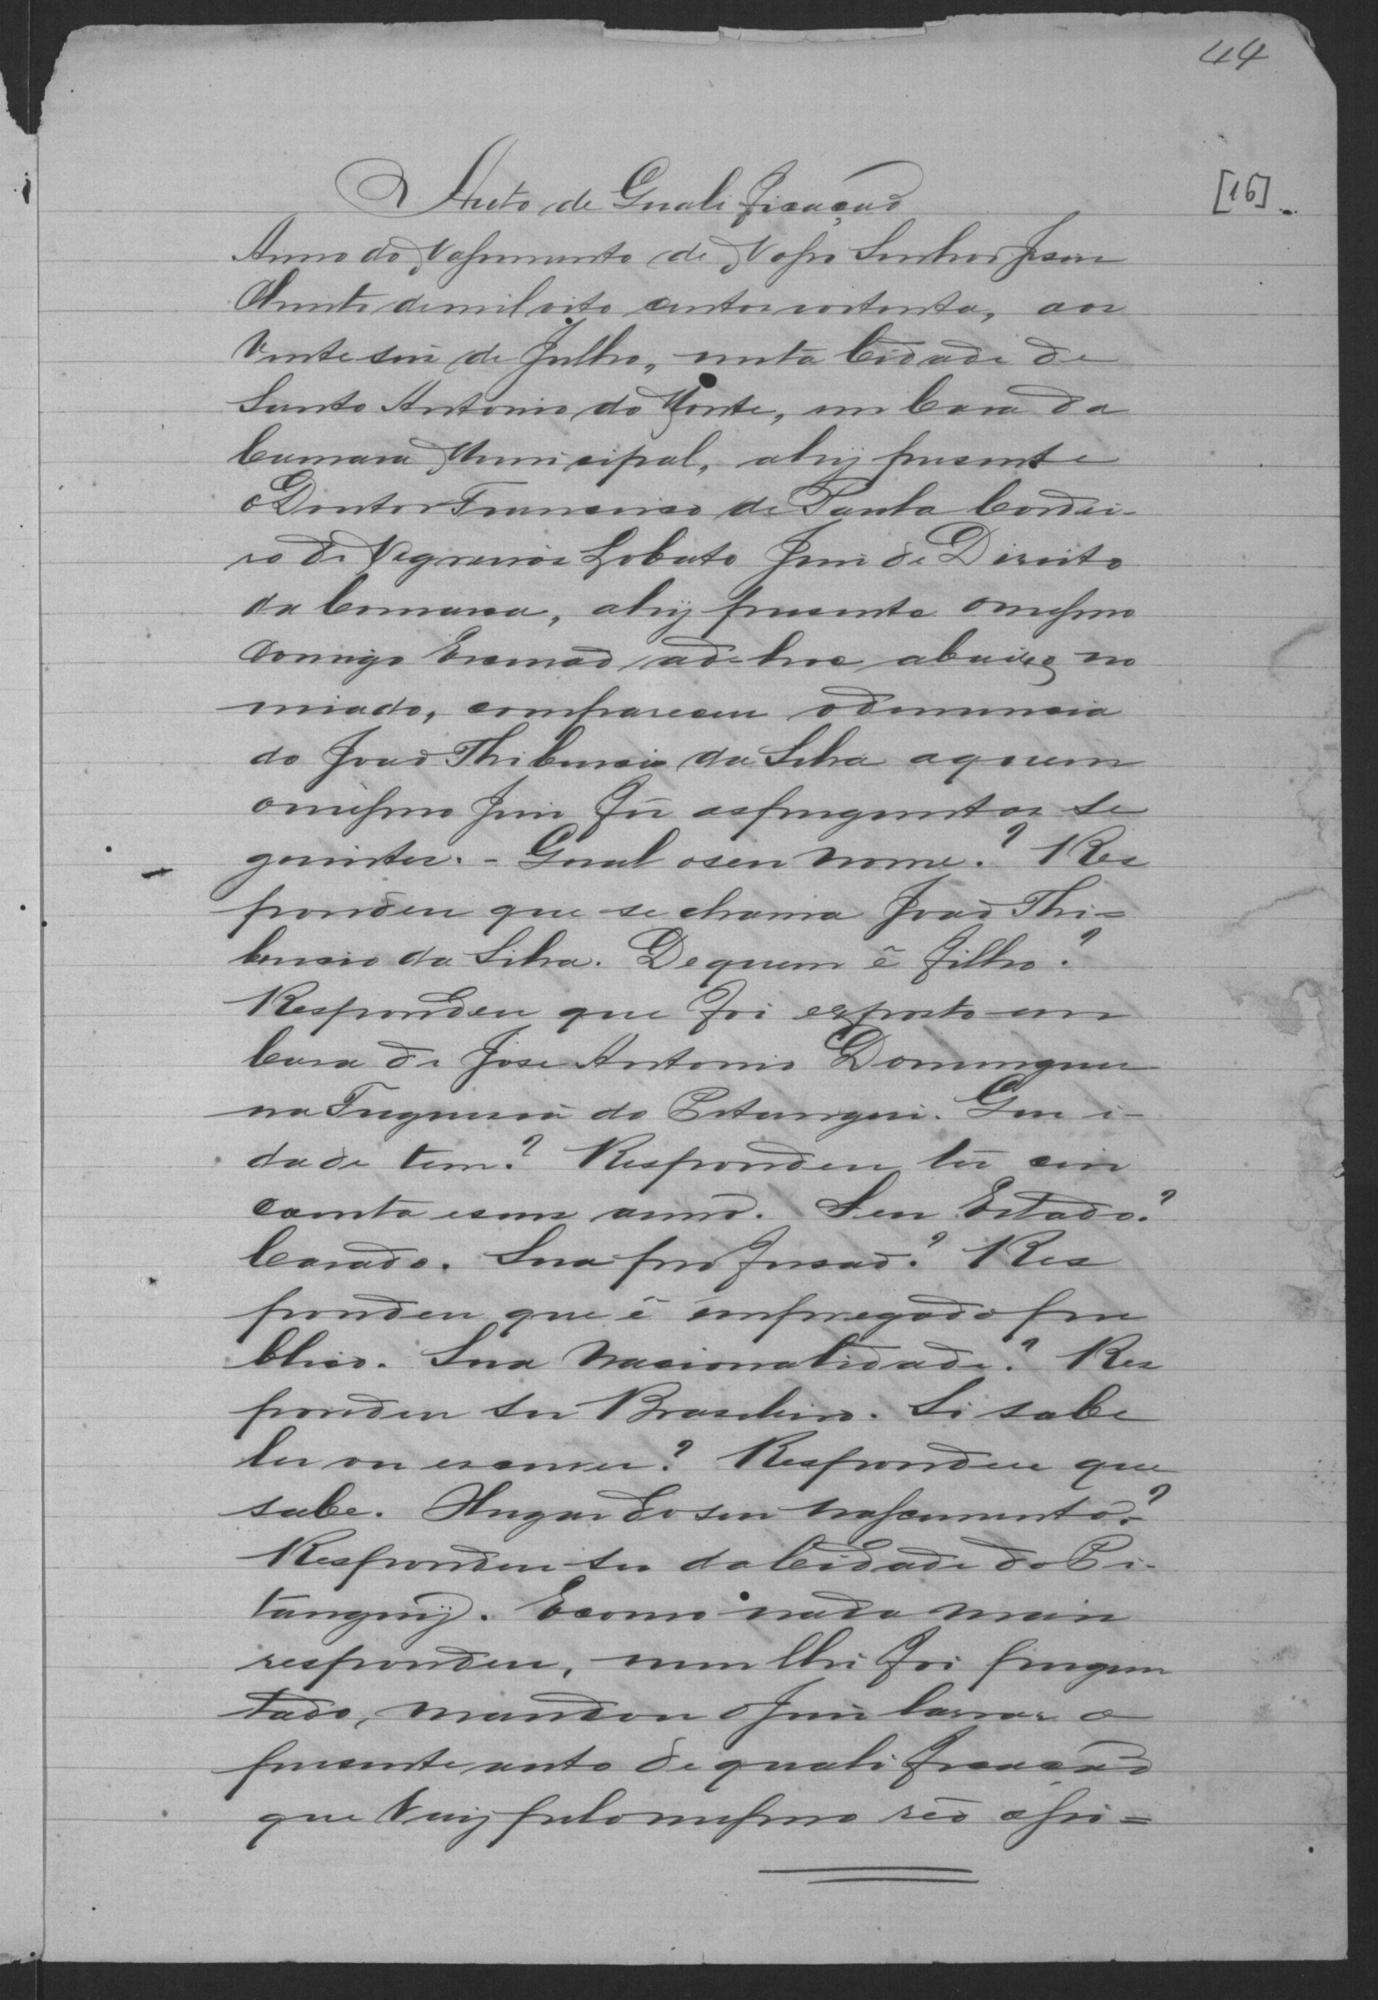 44
[16]
Auto de Qualificação
Anno do Nascimento de Nosso Senhor Jesus
Christo de mil oito centos e oitenta, aos
Vinte seis de Julho, nesta Cidade de
Santo Antonio do Monte, em Casa da
Camara Municipal, ahij presente
o Doutor Francisco de Paula Cordei-
ro de Negreiros Lobato Juiz de Direito
da Comarca, ahij presente o mesmo
Comigo Escrivaõ ad-hoc abaixo no
miado, compareceu o denuncia
do Joaõ Thiburcio da Silva a quem
o mesmo Juiz fez as preguntas se
guintes. - Qual o seu nome? Res
pondeu que se chama Joaõ Thi=
burcio da Silva. De quem é filho?
Respondeu que foi exposto em
Casa de Jose Antonio Domingues
na Freguesia do Pitangui. Que i-
dade tem? Respondeu ter cin
coenta e um anno. Seu Estado?
Casado. Sua profissaõ? Res
pondeu que é empregado pu
blico. Sua Nacionalidade? Res
pondeu ser Brasileiro. Si sabe
ler ou escrever? Respondeu que
sabe. O lugar do seu nascimento?
Respondeu ser da Cidade do Pi-
tanguij. E como nada mais
respondeu, nem lhe foi pregun
tado, mandou o Juiz lavrar o
presente auto de qualificação
que vaij pelo mesmo réo assi=